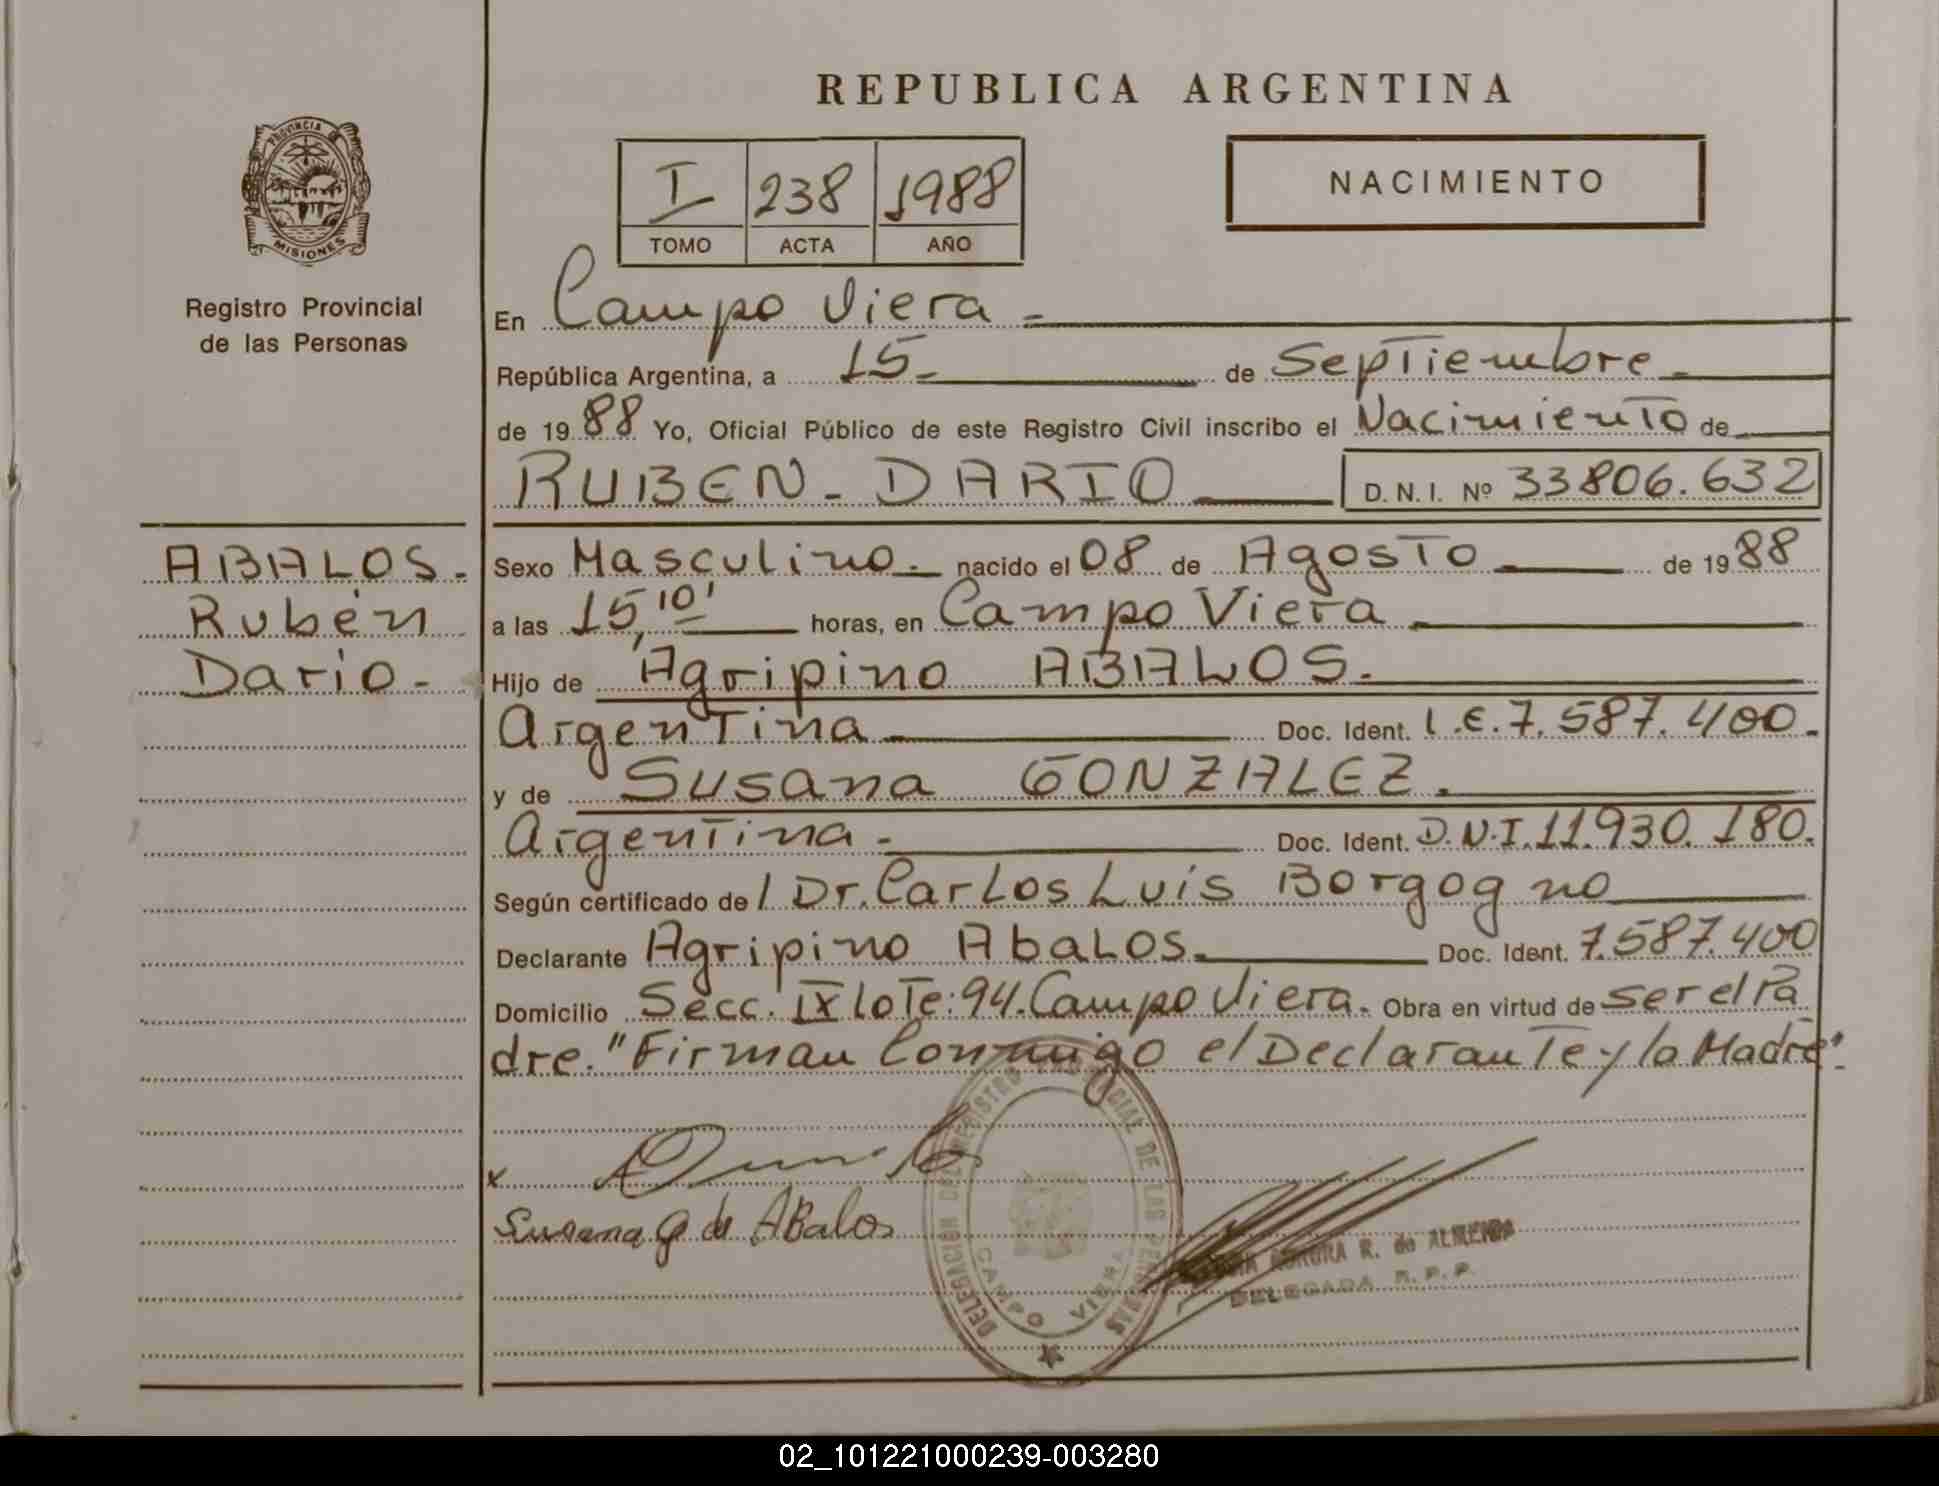 REPUBLICA ARGENTINA
PROVINCIA DE
MISIONES
Registro Provincial
de las Personas
I 238 1988
TOMO ACTA AÑO
NACIMIENTO
En Campo Viera
República Argentina, a 15 de Septiembre
de 1988 Yo, Oficial Público de este Registro Civil inscribo el Nacimiento de
RUBEN DARIO D.N.I. Nº 33806.632
ABALOS.
Rubén
Darío
Sexo Masculino. nacido el 08 de Agosto de 1988
a las 15,10' horas, en Campo Viera
Hijo de Agripino ABALOS.
Argentina Doc. Ident. L.E. 7.587.400.
y de Susana GONZALEZ.
Argentina Doc. Ident. D.N.I. 11.930.180.
Según certificado de / Dr. Carlos Luis Borgogno
Declarante Agripino Abalos. Doc. Ident. 7.587.400
Domicilio Secc. IX lote: 94. Campo Viera. Obra en virtud de ser el Pa
dre. "Firman Conmigo el Declarante y la Madre".
x
Susana G de Abalos
DELEGACION DEL REGISTRO PROVINCIAL DE LAS PERSONAS
CAMPO VIERA
AURORA R. de ALMEIDA
DELEGADA R.P.P.
02_101221000239-003280